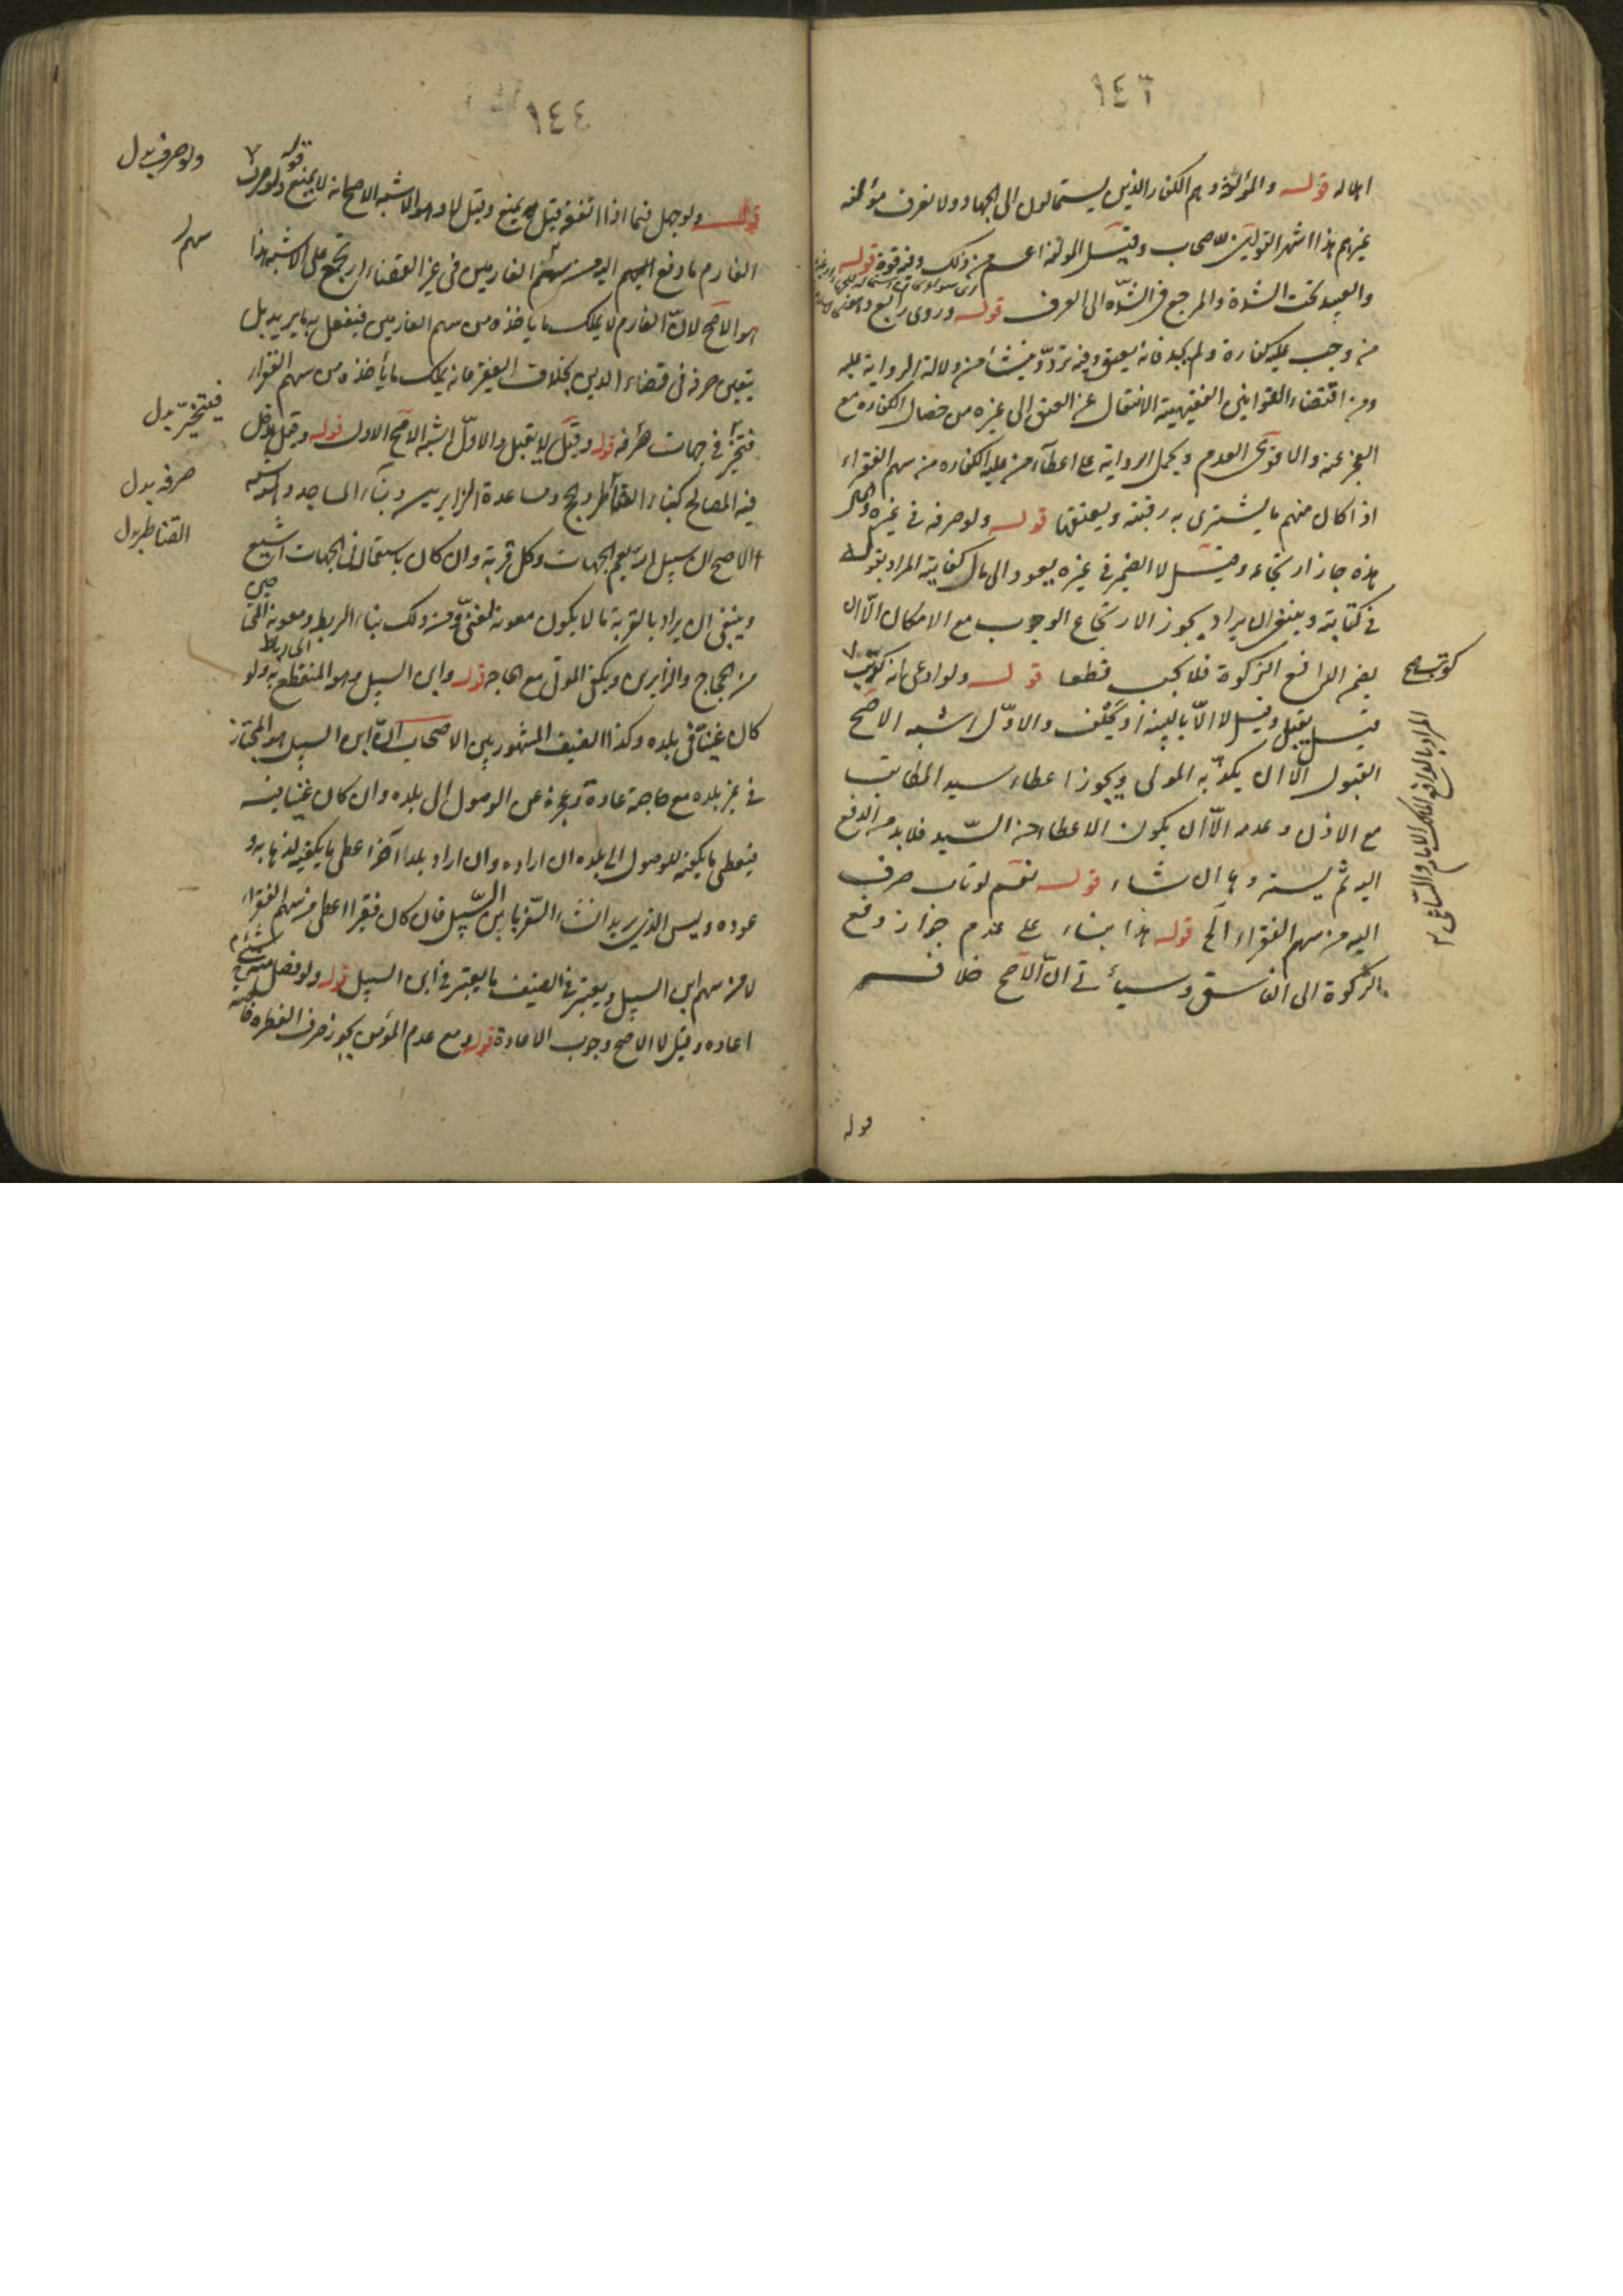 ١٤٣
اهلاله قوله والمؤلفة وهم الكفار الذين يستمالون الى الجهاد ولا نعرف مؤلفة
غيرهم هذا اشهر القولين للاصحاب وقيل المؤلفة اعم من ذلك وفيه قوة قوله
والعبيد تحت الشدة والمرجع في الشدة الى العرف قوله وروى رابع وهو
من وجب عليه كفارة ولم يجد فانه يعتق وفيه تردد منشأ من دلالة الرواية عليه
ومن اقتضاء القوانين الفقهية الانتقال عن العتق الى غيره من خصال الكفارة مع
العجز عنه والاقوى العدم ويحمل الرواية على اعطاء من عليه الكفارة من سهم الفقراء
اذا كان منهم ما يشترى به رقبة ويعتقها قوله ولو صرفه في غيره والحال
هذه جاز ارتجاعه وقيل لا الضمير في غيره يعود الى مال كفايته المراد بقوله
في كتابته وينبغي ان يراد بجوز الارتجاع الوجوب مع الامكان الا ان
يضم الدافع الزكوة فلا يجب قطعا قوله ولو ادعى انه كوتب
قيل يقبل وقيل لا الا بالبينة او يحلف والاول اشبه الاصح
القبول الا ان يكذبه المولى ويجوز اعطاء سيد المكاتب
مع الاذن وعدمه الا ان يكون الاعطاء من السيد فلابد من الدفع
اليه ثم يسترده ان شاء قوله نعم لو تاب صرف
اليه من سهم الفقراء الخ قوله هذا بناء على عدم جواز دفع
الزكوة الى الفاسق وسيأتي ان الاصح خلافه
كوتب صح
المراد بالدافع المالك الامام والساعي
قوله
١٤٤
قوله ولو جهل فيما اذا انفقه قيل يمنع وقيل لا وهو الاشبه الاصح انه لا يمنع قوله ولو صرف
الغارم ما دفع اليه من سهم الغارمين في غير القضاء ارتجع على الاشبه هذا
هو الاصح لان الغارم لا يملك ما ياخذه من سهم الغارمين فيفعل به ما يريد بل
يتعين صرفه في قضاء الدين بخلاف الفقير فانه يملك ما يأخذه من سهم الفقراء
فتخير في جهات صرفه قوله وقيل لا يقبل والاول اشبه الاصح الاول قوله وقيل يدخل
فيه المصالح كبناء القناطر والحج ومساعدة الزايرين وبناء المساجد وهو الاشبه
الاصح ان سبيل الله يعم الجهات وكل قربة وان كان باستعمال في الجهات اشيع
وينبغي ان يراد بالقربة ما لا يكون معونة لغني ومن ذلك بناء الربط ومعونة المحتاجين
من الحجاج والزايرين وتكفين الموتى مع الحاجة قوله وابن السبيل وهو المنقطع به ولو
كان غنيا في بلده وكذا الضيف المشهور بين الاصحاب ان ابن السبيل هو المجتاز
في غير بلده مع حاجته عادة وعجزه عن الوصول الى بلده وان كان غنيا فيه
فيعطى ما يكفيه للوصول الى بلده ان اراده وان اراد بلدا آخر اعطي ما يكفيه لذهابه و
عوده وليس الذي يريد انشاء السفر بابن السبيل فان كان فقيرا اعطي من سهم الفقراء
لا من سهم ابن السبيل ويعتبر في الضيف ما يعتبر في ابن السبيل قوله ولو فضل منه شيء
اعاده وقيل لا الاصح وجوب الاعادة قوله ومع عدم المؤمن يجوز صرف الفطرة خاصة
ولو صرف بدل
سهم
فيتخير بدل
صرفه بدل
القناطر بدل